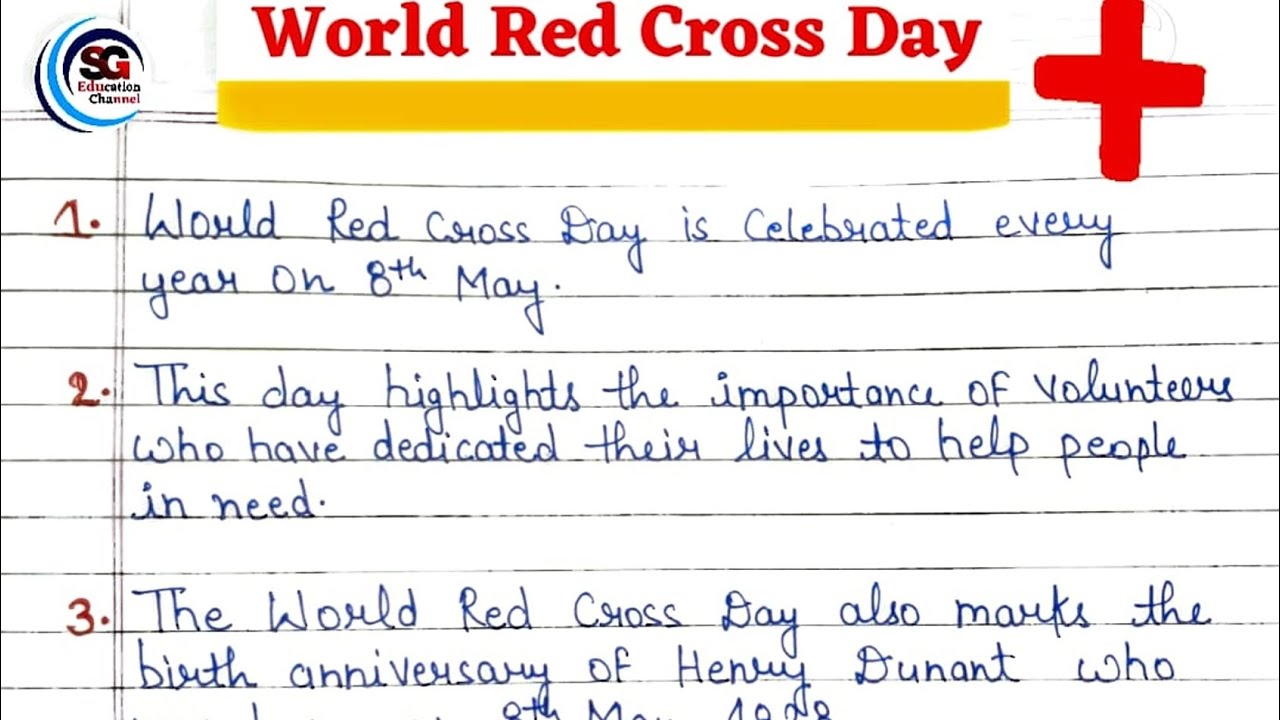 World Red Cross Day
SG
Education
Channel
1. World Red Cross Day is Celebrated every
year on 8th May.
2. This day highlights the importance of volunteers
who have dedicated their lives to help people
in need.
3. The World Red Cross Day also marks the
birth anniversary of Henry Dunant who
8th May